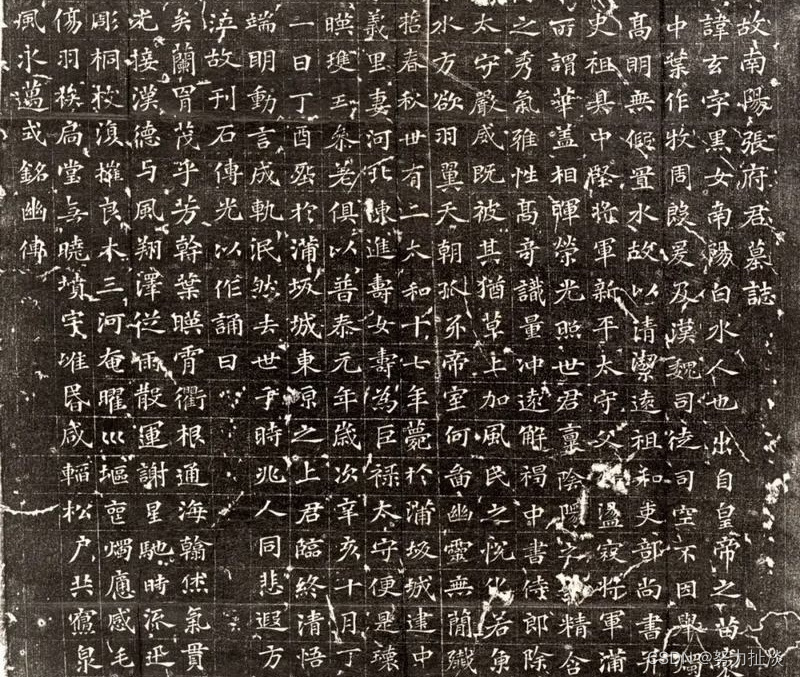 故南陽張府君墓誌
諱玄字黑女南陽白水人也出自皇帝之苗裔
中葉作牧周殷爰及漢魏司徒司空不因舉燭
高明無假置水故以清潔遠祖和吏部尚書并
史祖具中堅將軍新平太守父盪寇將軍蒲
所謂華蓋相暉榮光照世君稟陰陽之精含
之秀氣雅性高奇識量沖遠解褐中書侍郎除
太守嚴威既被其猶草上加風民之悅化若魚
水方欲羽翼天朝抓牙帝室何啚幽靈無簡殲
哲春秋卅有二太和十七年薨於蒲坂城建中
義里妻河北陳進壽女壽為巨祿太守便是瓌
暎瓊玉參差俱以普泰元年歲次辛亥十月丁
一日丁酉葬於蒲坂城東原之上君臨終清悟
端明動言成軌泯然去世于時兆人同悲遐方
泣故刊石傳光以作誦曰
矣蘭冑茂乎芳幹葉暎霄衢根通海翰倏氣貫
光接漢德与風翔澤從雨散運謝星馳時流迅
彫桐枝復摧良木三河奄曜巛堰燭痛感毛
傷羽族扃堂無曉墳宇唯昏咸輼松戶共寢泉
風永邁式銘幽傳
CSDN @努力扯淡